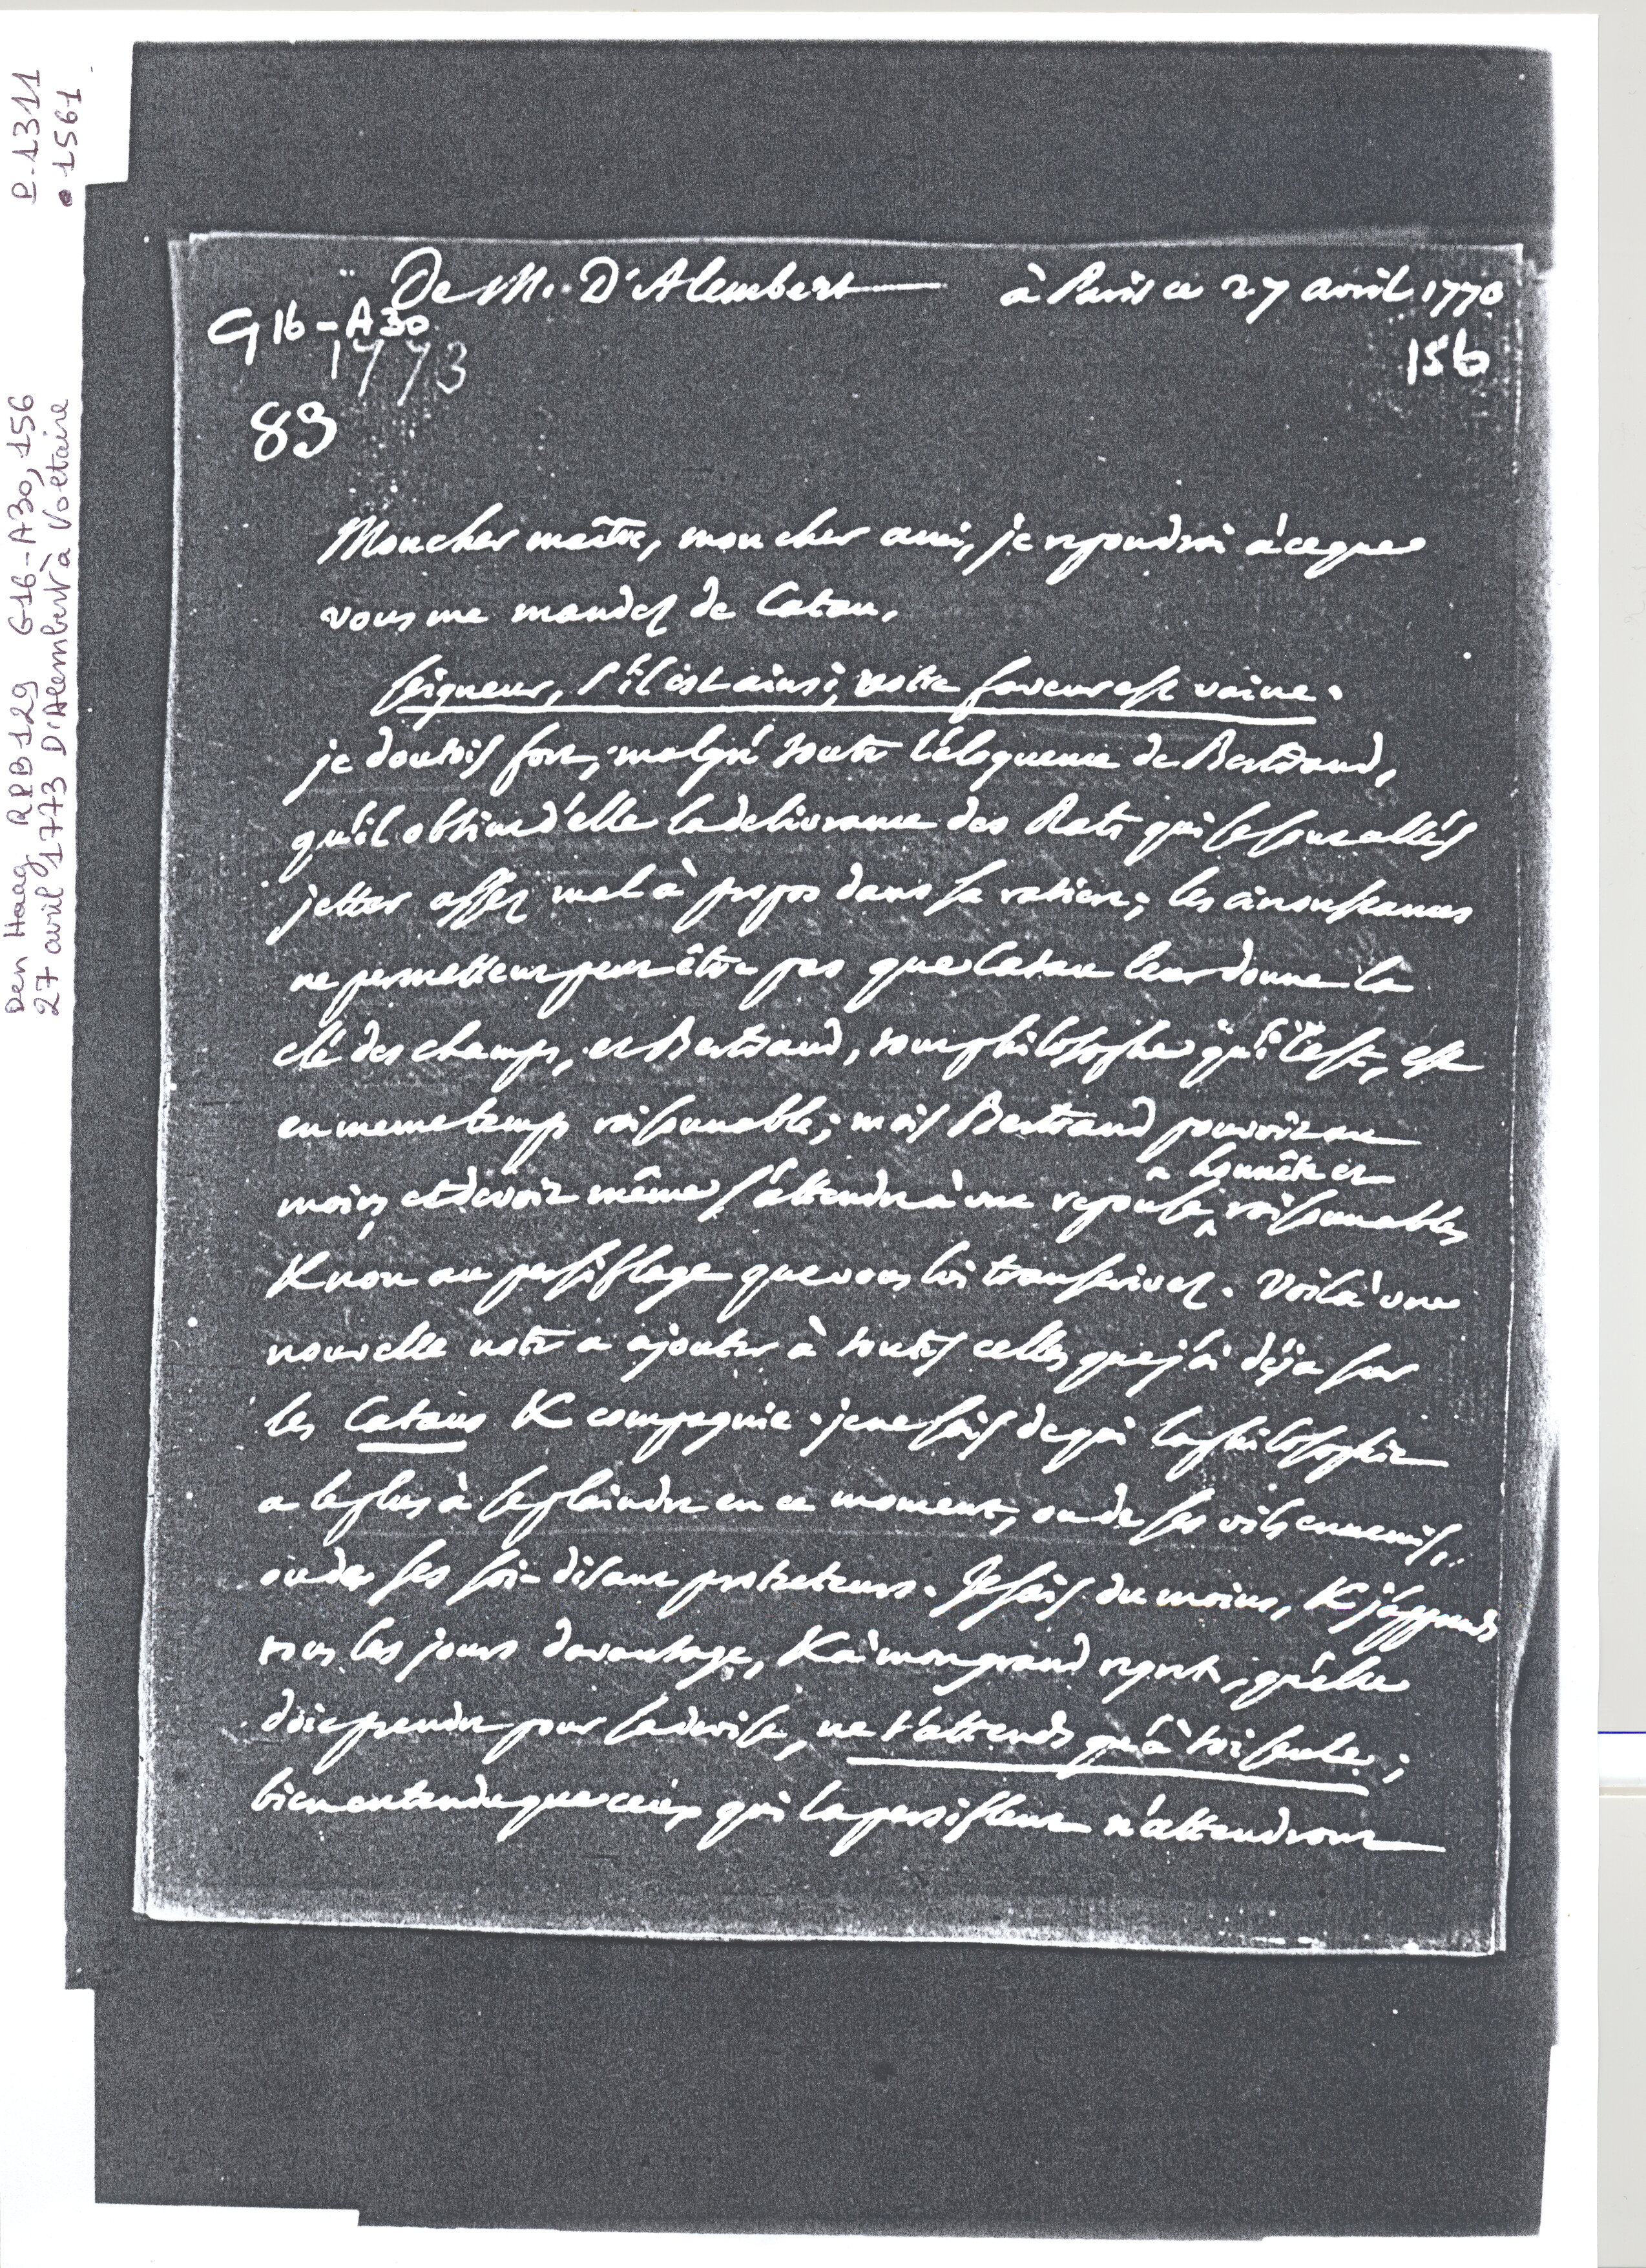 P.1311
• 1561
Den Haag RPB 129 G16-A30, 156
27 avril 1773 D'Alembert à Voltaire
De M. D'Alembert — à Paris ce 27 avril 1770
G16-A30
1773
156
83
Mon cher maître, mon cher ami, je repondrai à ce que
vous me mandez de Catau,
Seigneur, s'il est ainsi, votre faveur est vaine.
je doutois fort, malgré toute l'éloquence de Bertrand,
qu'il obtint d'elle la delivrance des Rats qui se sont allés
jetter assez mal à propos dans sa ratiere; les circonstances
ne permettent peut être pas que Catau leur donne la
clé des champs, et Bertrand, tout philosophe qu'il est, est
en meme temps raisonnable; mais Bertrand pouvoit au
moins et devoit même s'attendre à une reponse honnête et raisonnable
& non au persifflage que vous lui transcrivez. Voilà une
nouvelle note a ajouter à toutes celles que j'ai déja sur
les Cataus & compagnie. je ne sais de qui la philosophie
a le plus à se plaindre en ce moment, ou de ses vils ennemis,
ou de ses soi-disant protecteurs. Je sais du moins, & j'apprends
tous les jours davantage, & à mon grand regret, qu'elle
doit prendre pour sa devise, ne t'attends qu'à toi seule;
bien entendu que ceux qui la persiflent n'attendront